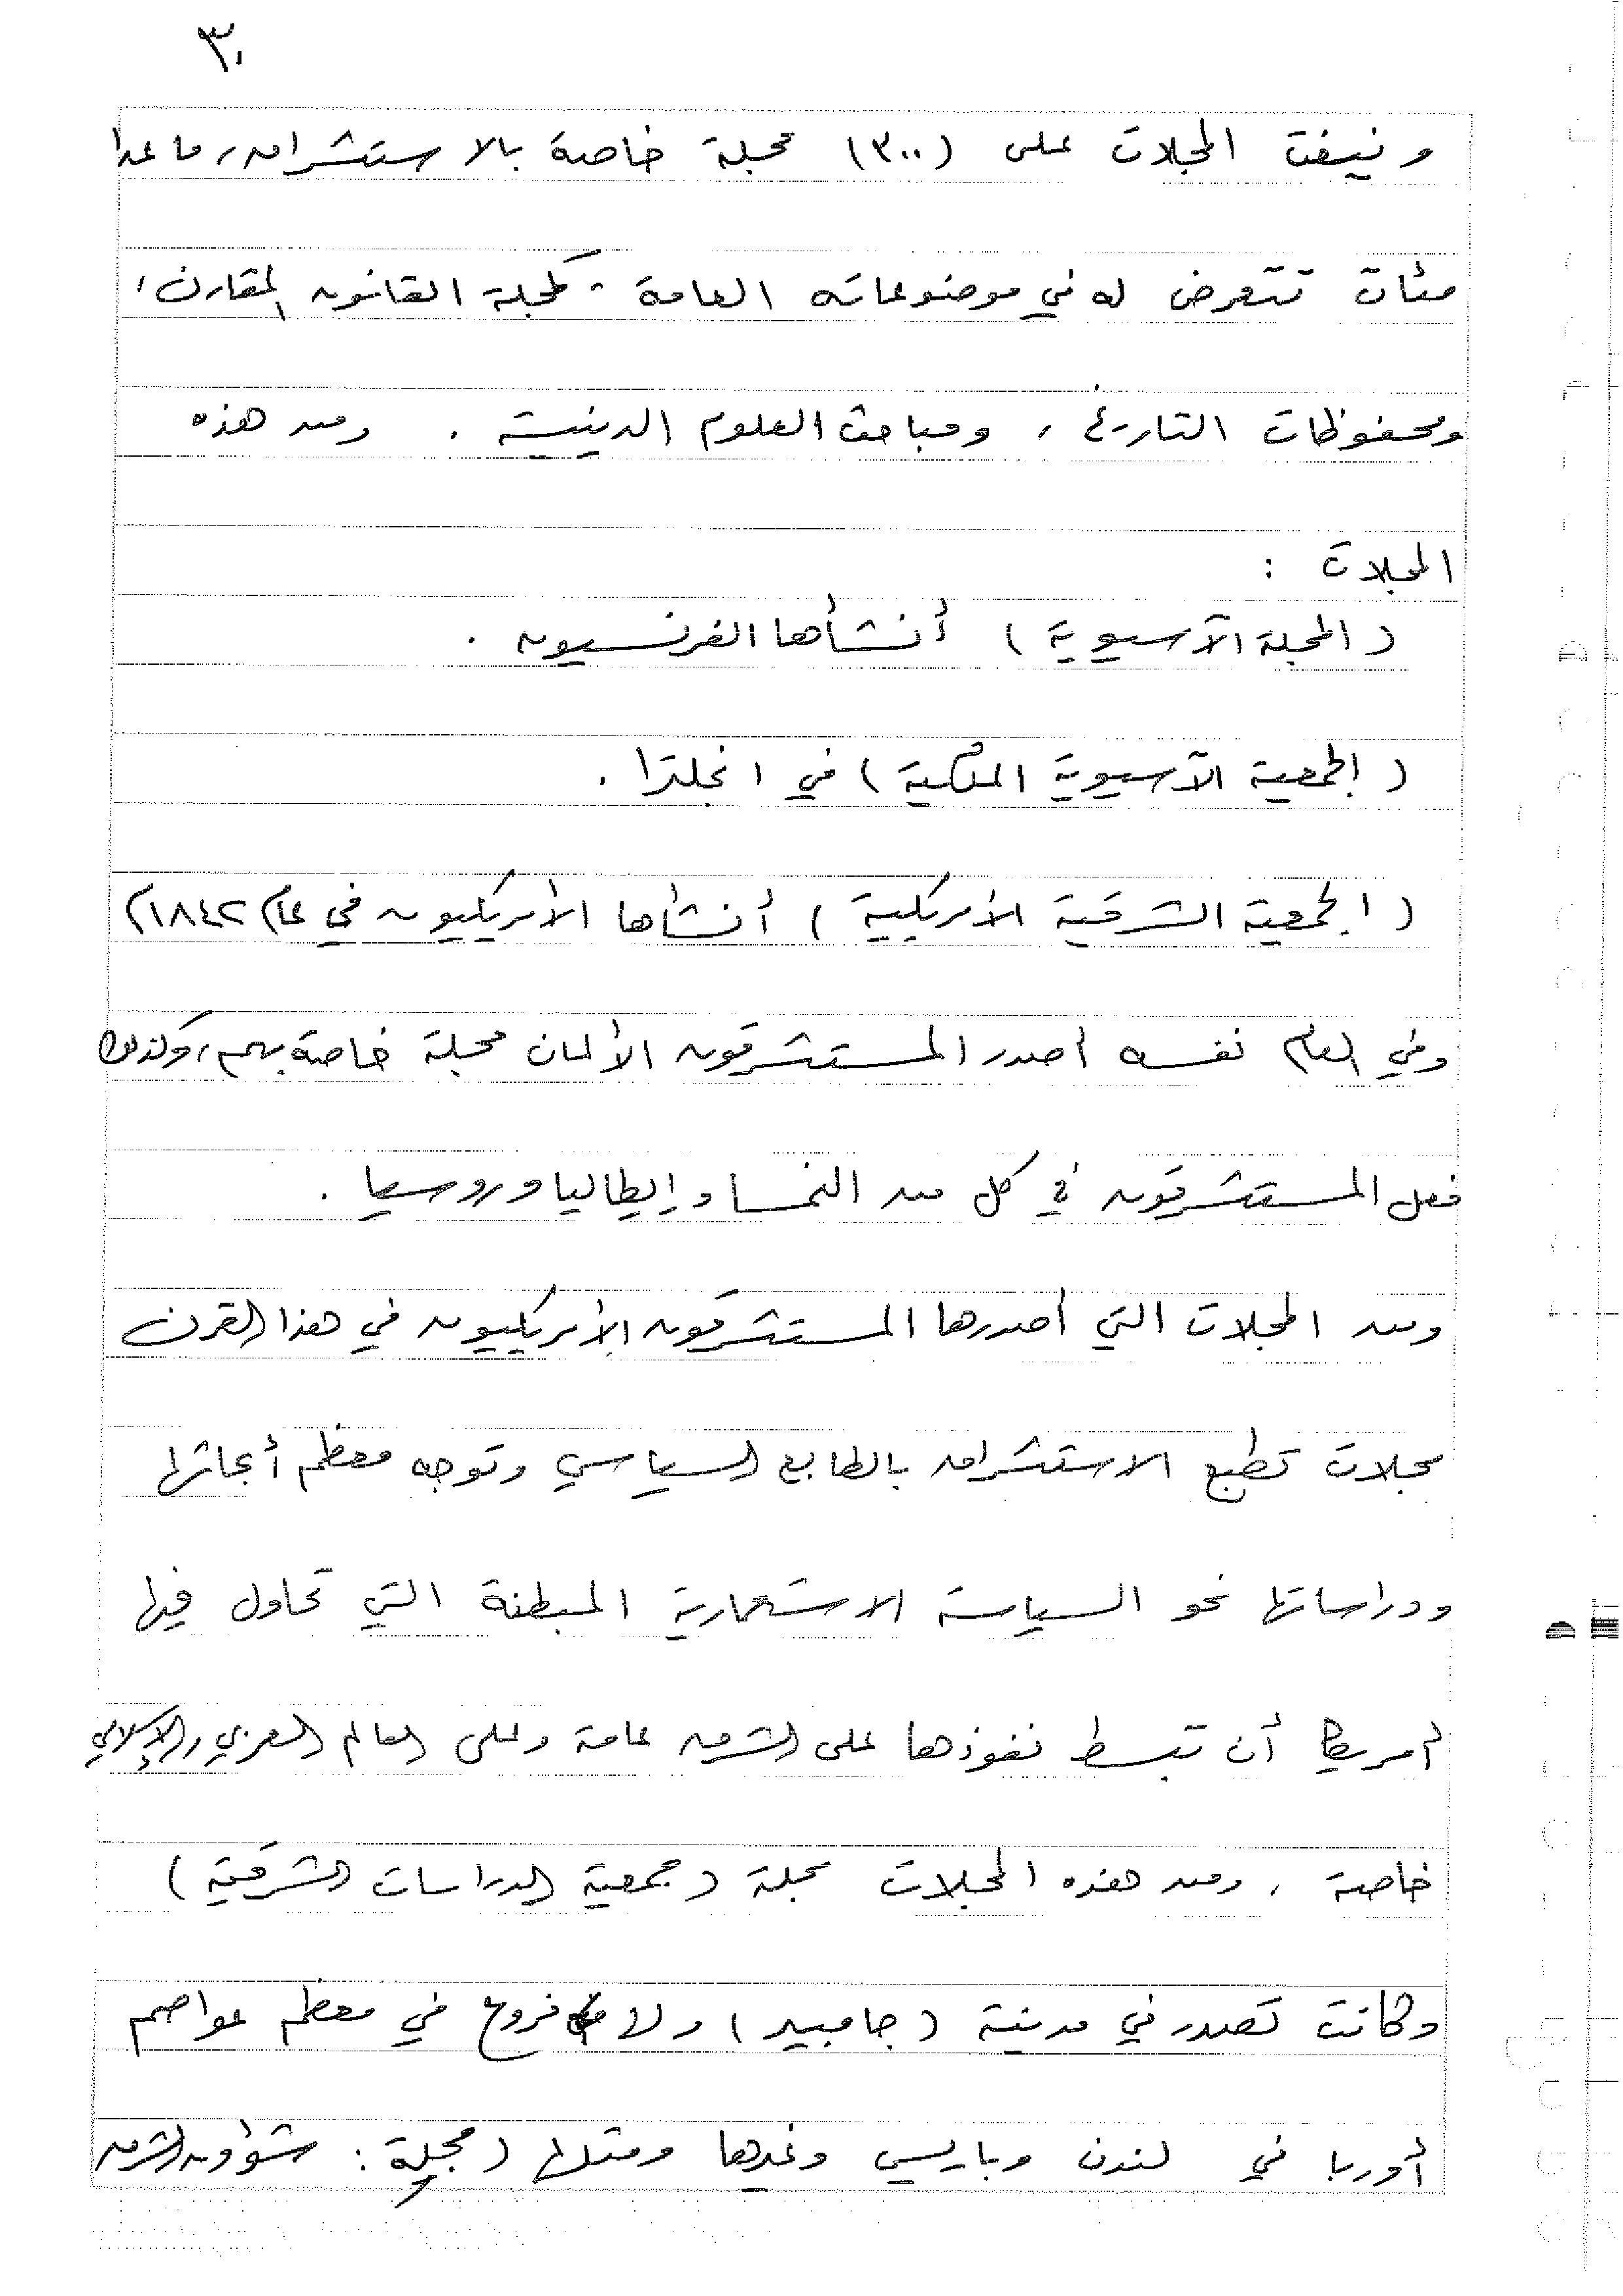 ٣٠
ونيفت المجلات على (٣٠٠) مجلة خاصة بالاستشراق، ما عدا
مئات تتعرض له في موضوعاته العامة كمجلة القانون المقارن،
ومحفوظات التاريخ، ومباحث العلوم الدينية. ومن هذه
المجلات :
(المجلة الآسيوية) أنشأها الفرنسيون.
(الجمعية الآسيوية الملكية) في انجلترا.
(الجمعية الشرقية الأمريكية) أنشأها الأمريكيون في عام ١٨٤٢م
وفي العام نفسه أصدر المستشرقون الألمان مجلة خاصة بهم، وكذلك
فعل المستشرقون في كل من النمسا وإيطاليا وروسيا.
ومن المجلات التي أصدرها المستشرقون الأمريكيون في هذا القرن
مجلات تطبع الاستشراق بالطابع السياسي وتوجه معظم أبحاثها
ودراساتها نحو السياسة الاستعمارية المبطنة التي تحاول فيها
أمريكا أن تبسط نفوذها على الشرق عامة وعلى العالم العربي والإسلامي
خاصة، ومن هذه المجلات مجلة (جمعية الدراسات الشرقية)
وكانت تصدر في مدينة (جامبير) ولها فروع في معظم عواصم
أوربا في لندن وباريس وغيرها ومثلها (مجلة: شؤون الشرق